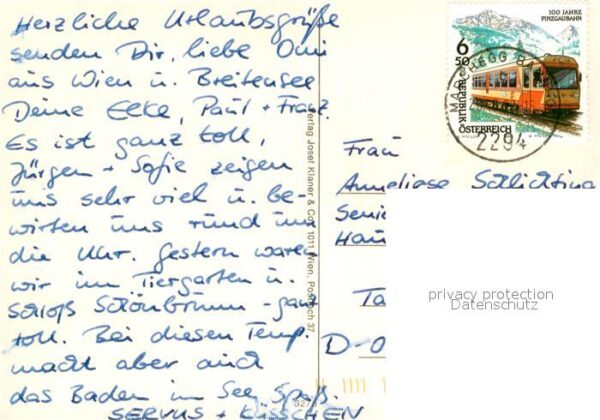 Herzliche Urlaubsgrüße
senden Dir, liebe Omi
aus Wien u. Breitensee
Deine Elke, Paul + Franz.
Es ist ganz toll,
Jürgen + Sofie zeigen
uns sehr viel u. be-
wirten uns rund um
die Uhr. Gestern waren
wir im Tiergarten u.
Schloß Schönbrunn - ganz
toll. Bei diesen Temp.
macht aber auch
das Baden im See Spaß.
SERVUS + KÜSSCHEN
Verlag Josef Klaner & Co., 1011 Wien, Postfach 37
3273
100 JAHRE
PINZGAUBAHN
6
50
REPUBLIK
ÖSTERREICH
MARCHEGG B
2294
Frau
Anneliese Schlichting
Senio
Hau
Ta
D-0
privacy protection
Datenschutz